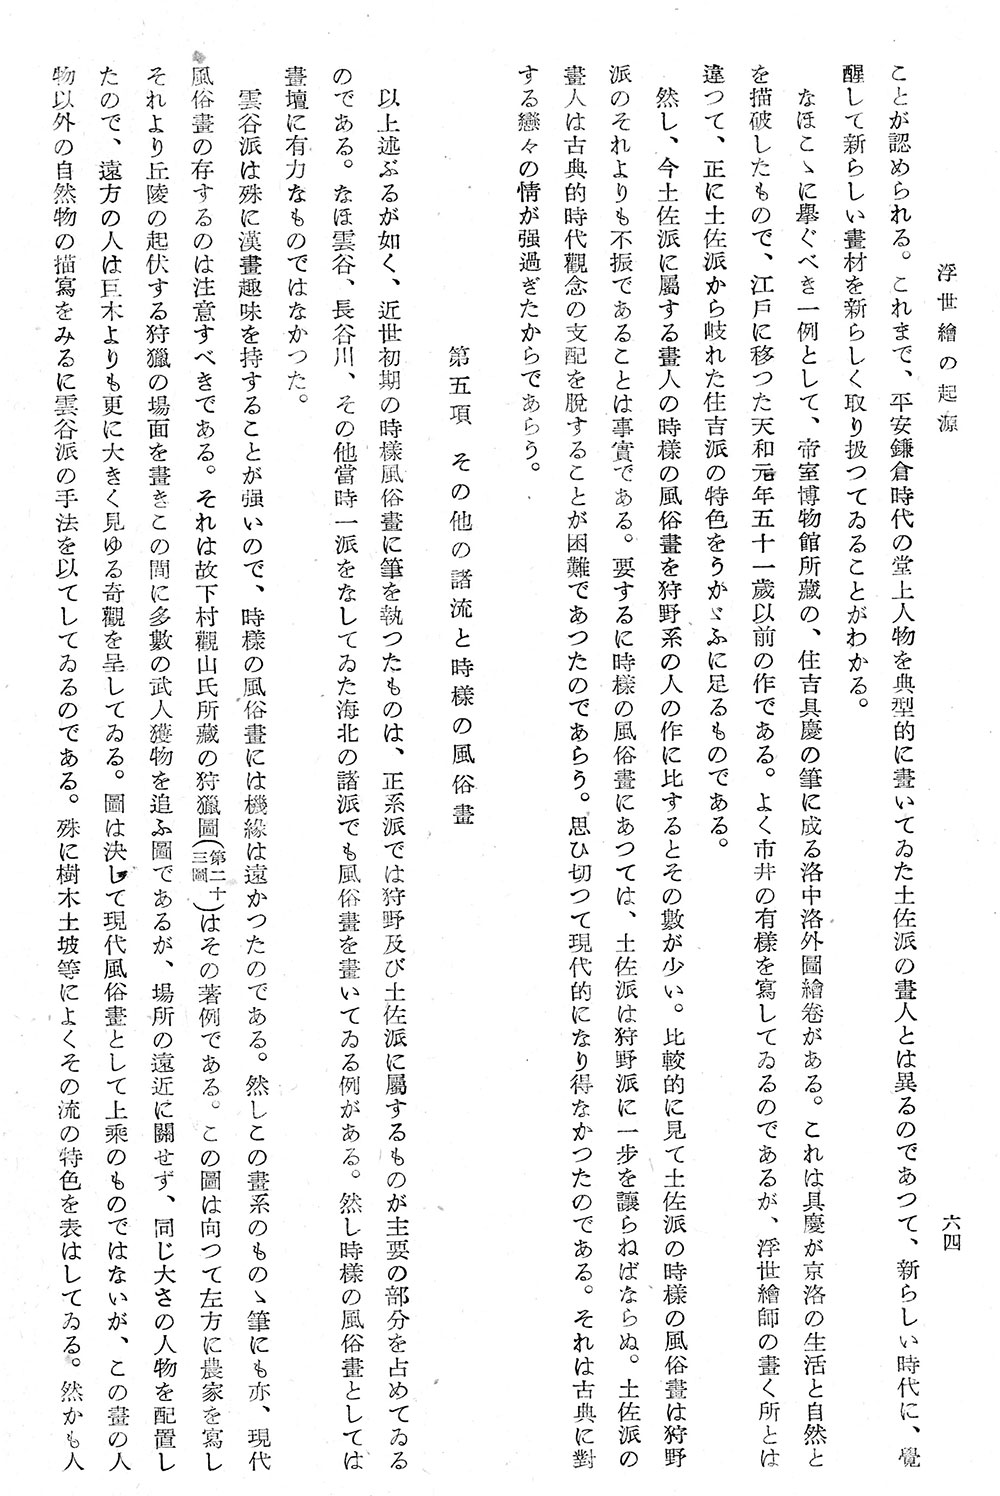 浮世繪の起源
六四
ことが認められる。これまで、平安鎌倉時代の堂上人物を典型的に畫いてゐた土佐派の畫人とは異るのであつて、新らしい時代に、覺
醒して新らしい畫材を新らしく取り扱つてゐることがわかる。
なほこゝに擧ぐべき一例として、帝室博物館所藏の、住吉具慶の筆に成る洛中洛外圖繪卷がある。これは具慶が京洛の生活と自然と
を描破したもので、江戸に移つた天和元年五十一歲以前の作である。よく市井の有樣を寫してゐるのであるが、浮世繪師の畫く所とは
違つて、正に土佐派から岐れた住吉派の特色をうかゞふに足るものである。
然し、今土佐派に屬する畫人の時樣の風俗畫を狩野系の人の作に比するとその數が少い。比較的に見て土佐派の時樣の風俗畫は狩野
派のそれよりも不振であることは事實である。要するに時樣の風俗畫にあつては、土佐派は狩野派に一步を讓らねばならぬ。土佐派の
畫人は古典的時代觀念の支配を脫することが困難であつたのであらう。思ひ切つて現代的になり得なかつたのである。それは古典に對
する戀々の情が强過ぎたからであらう。
第五項 その他の諸流と時樣の風俗畫
以上述ぶるが如く、近世初期の時樣風俗畫に筆を執つたものは、正系派では狩野及び土佐派に屬するものが主要の部分を占めてゐる
のである。なほ雲谷、長谷川、その他當時一派をなしてゐた海北の諸派でも風俗畫を畫いてゐる例がある。然し時樣の風俗畫としては
畫壇に有力なものではなかつた。
雲谷派は殊に漢畫趣味を持することが强いので、時樣の風俗畫には機緣は遠かつたのである。然しこの畫系のものゝ筆にも亦、現代
風俗畫の存するのは注意すべきである。それは故下村觀山氏所藏の狩獵圖(第二十三圖)はその著例である。この圖は向つて左方に農家を寫し
それより丘陵の起伏する狩獵の場面を畫きこの間に多數の武人獲物を追ふ圖であるが、場所の遠近に關せず、同じ大さの人物を配置し
たので、遠方の人は巨木よりも更に大きく見ゆる奇觀を呈してゐる。圖は決して現代風俗畫として上乘のものではないが、この畫の人
物以外の自然物の描寫をみるに雲谷派の手法を以てしてゐるのである。殊に樹木土坡等によくその流の特色を表はしてゐる。然かも人